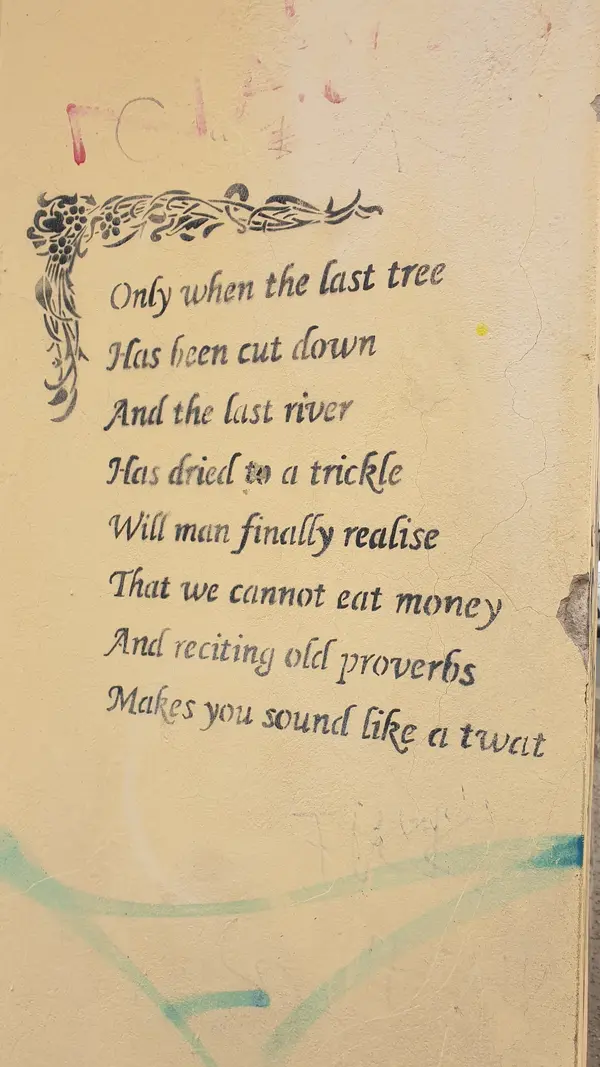 Only when the last tree
Has been cut down
And the last river
Has dried to a trickle
Will man finally realise
That we cannot eat money
And reciting old proverbs
Makes you sound like a twat